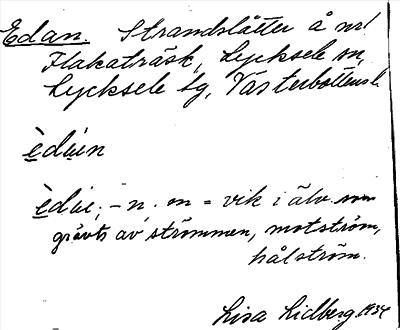 Edan. Strandslåtter å nv.
Flakaträsk, Lycksele sn,
Lycksele lg, Västerbottens l.
èdáen
èdáe, -n. m = vik i älv som
grävts av strömmen, motström,
hålström.
Lisa Lidberg 1934